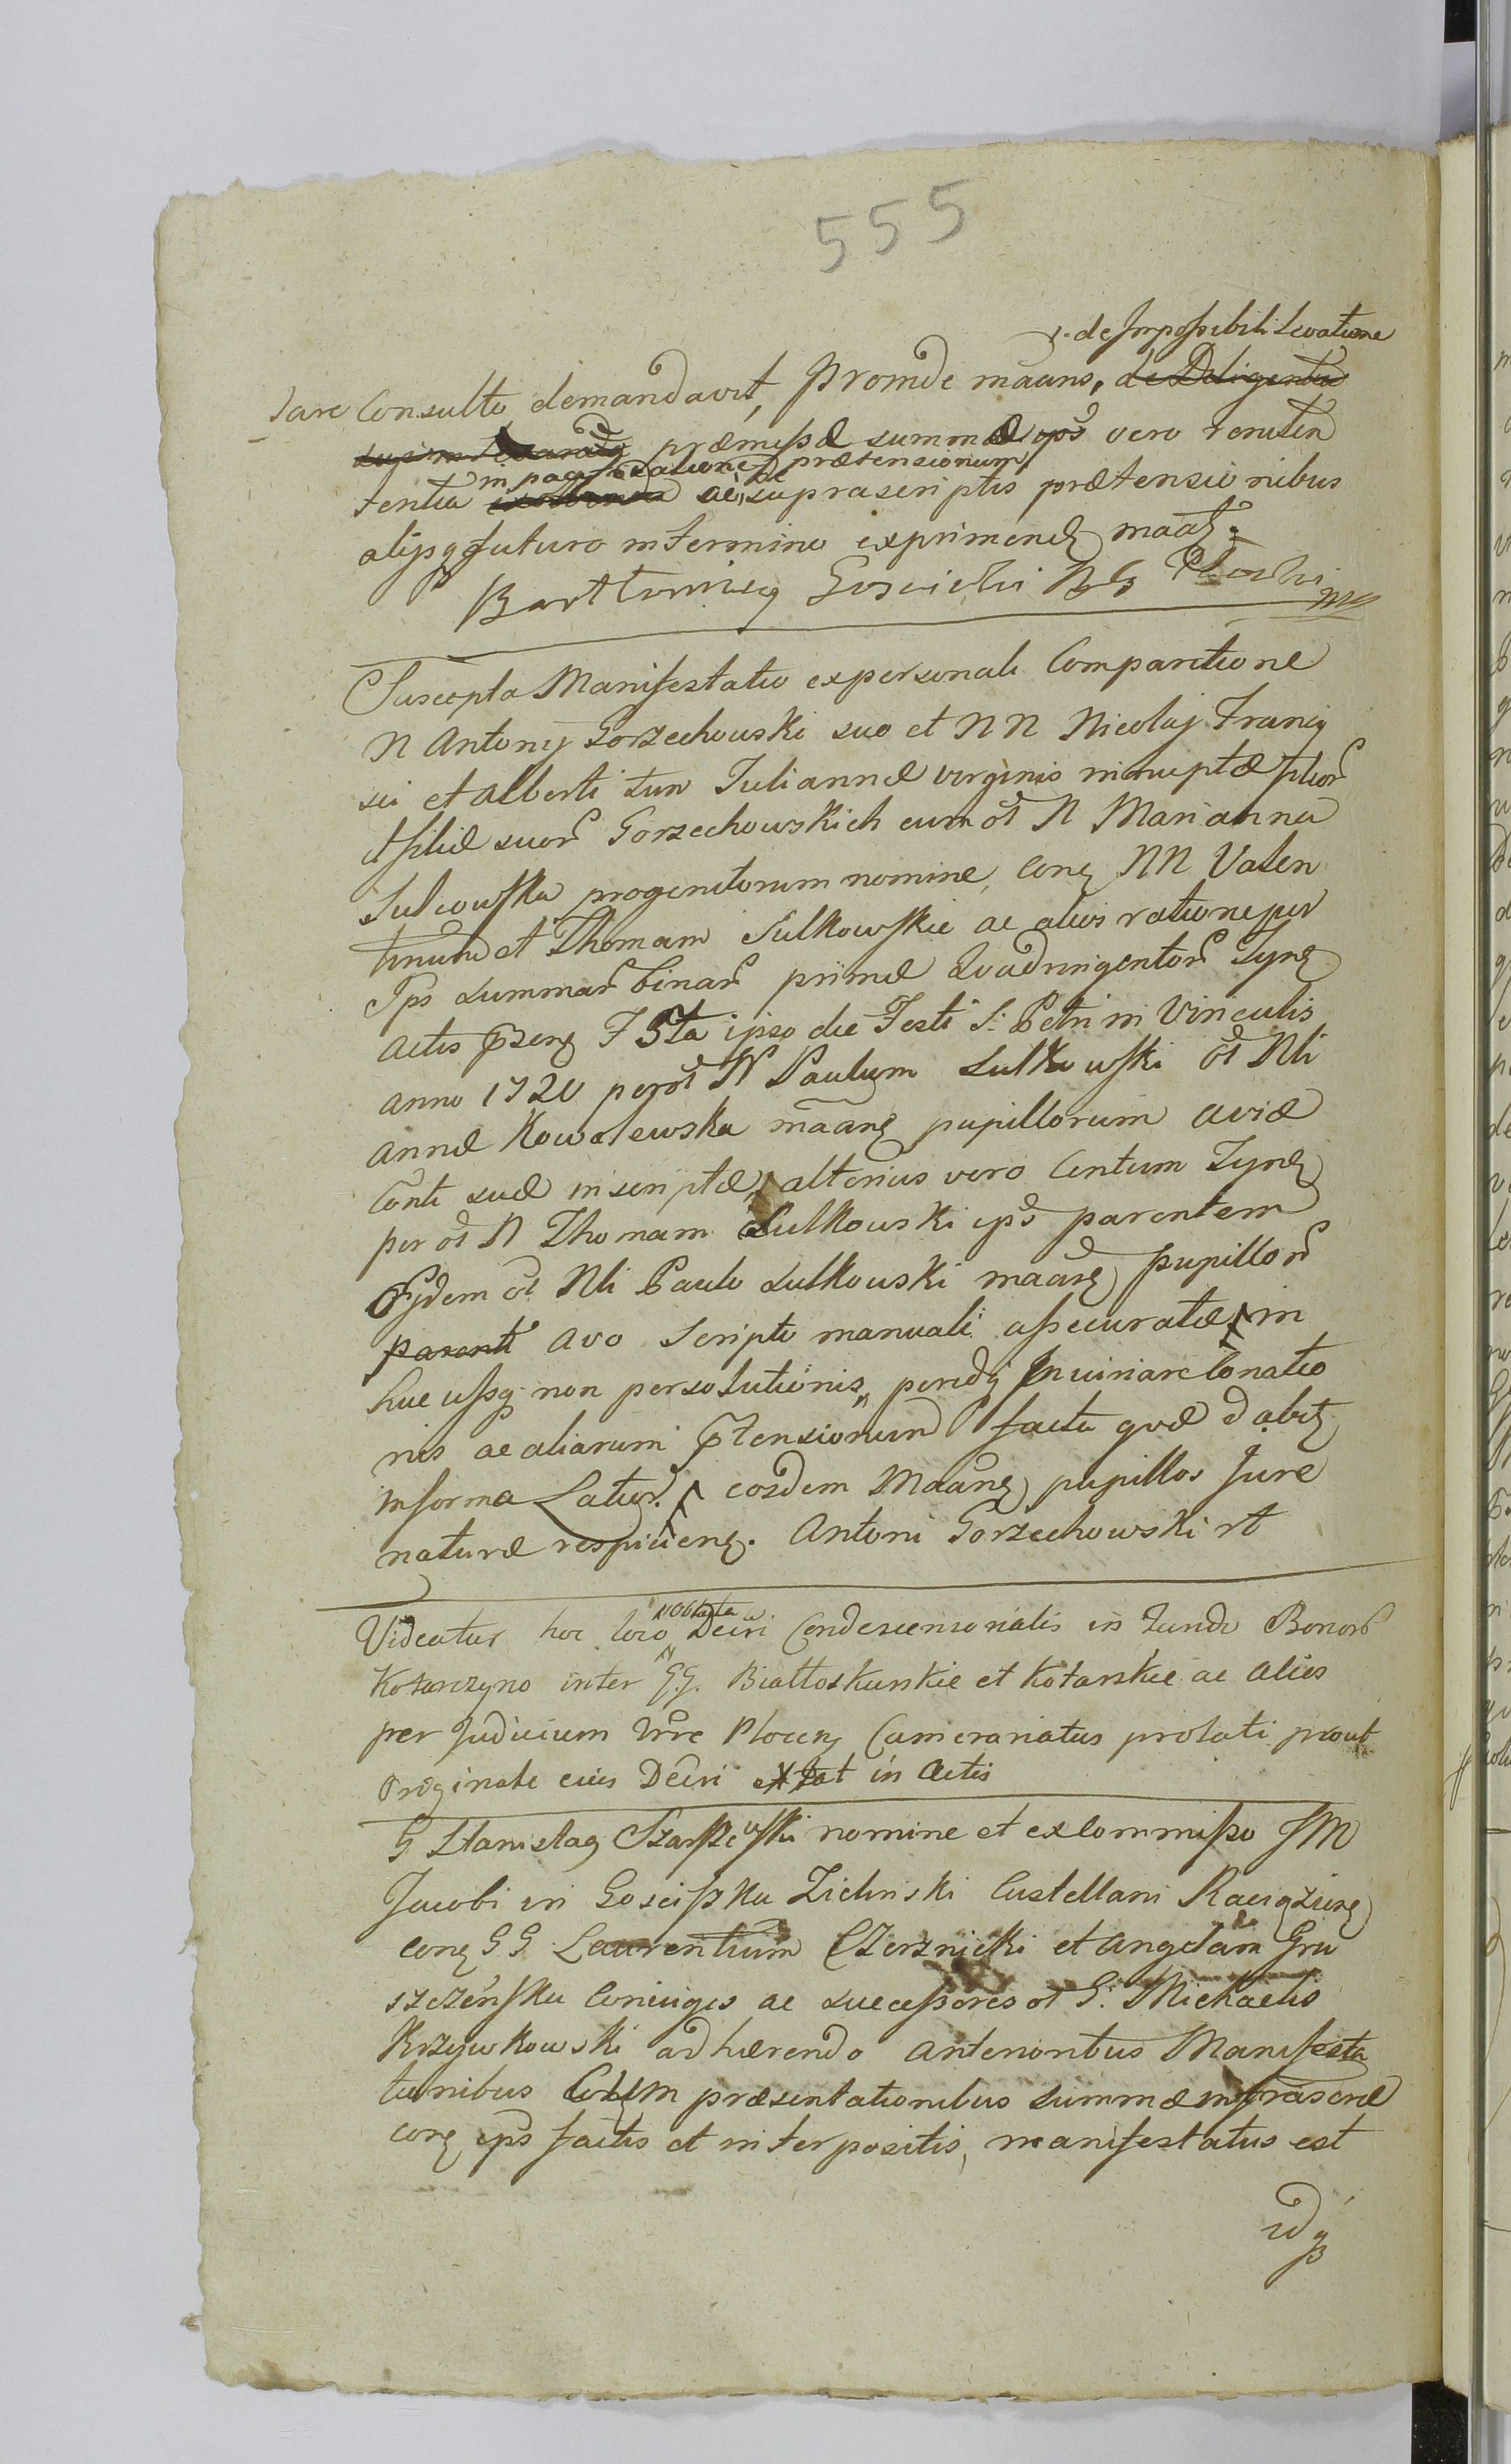 555
de Impossibili Levatione
dare Consulto demandavit, Proinde māans, de Diligentia
præmissæ summæ ips̄ vero reniten
in pac praetensionum
tentia ac de suprascriptis prætensionibus
alijsq futuro in termino exprimend maat.
Bartłomiey Gościcki mp
Suscepta Manifestatio ex personali Comparitione
N Antonij Gorzechowski suo et N N Nicolaj Franci
sci et Alberti tum Juliannæ virginis innuptæ filior
et filiæ suor Gorzechowskich cum ol N Marianna
Sulkowska progenitorum nomine, Con NN Valen
tinum et Thomam Sulkowskie ac alios ratione per
Ips summar binar primæ Quadringentor Tynf
Actis præsen F 5ta ipso die Festi S: Petri in Vinculis
anno 1720 per ol N Paulum Sulkowski ol Nli
Annæ Kowalewska māan pupillorum aviæ
Conti suæ inscriptæ, alterius vero Centum Tynf
per ol N Thomam Sulkowski ips parentem
Eidem ol Nli Paulo Sulkowski māan pupillor
parenti avo Scripto manuali assecuratæ in
huc usq non persolutionis, perindę Inviniare Conatio
nis ac aliarum prætensionum facta quæ dabit
in forma Latior. eosdem Māan pupillos Jure
naturæ respicien. Antoni Gorzechowski rt
Videatur hoc loco Oblata Decri Condescensorialis in fundo Bonor
Kotarczyno inter G.G. Białłoskurskie et Kotarskie ac alios
per Judicium Trre Plocen Camerariatus prolati prout
Originale eius Decri extat in Actis
G Stanislaq Szarszewski nomine et ex Commisso JM
Jacobi in Gosciszka Zielinski Castellani Raciązien
con G G Laurentium Czerznicki et Angelam Gru
szczeńska Coniuges ac successores ol G. Michaelis
Krzywkowski adhærendo anterioribus Manifesta
tionibus præsentationibus summæ infrascræ
con ips factis et interpositis, manifestatus est
idq